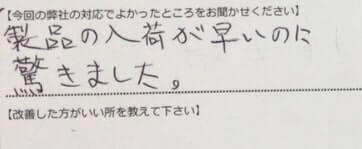 【今回の弊社の対応でよかったところをお聞かせください】
製品の入荷が早いのに
驚きました。
【改善した方がいい所を教えて下さい】